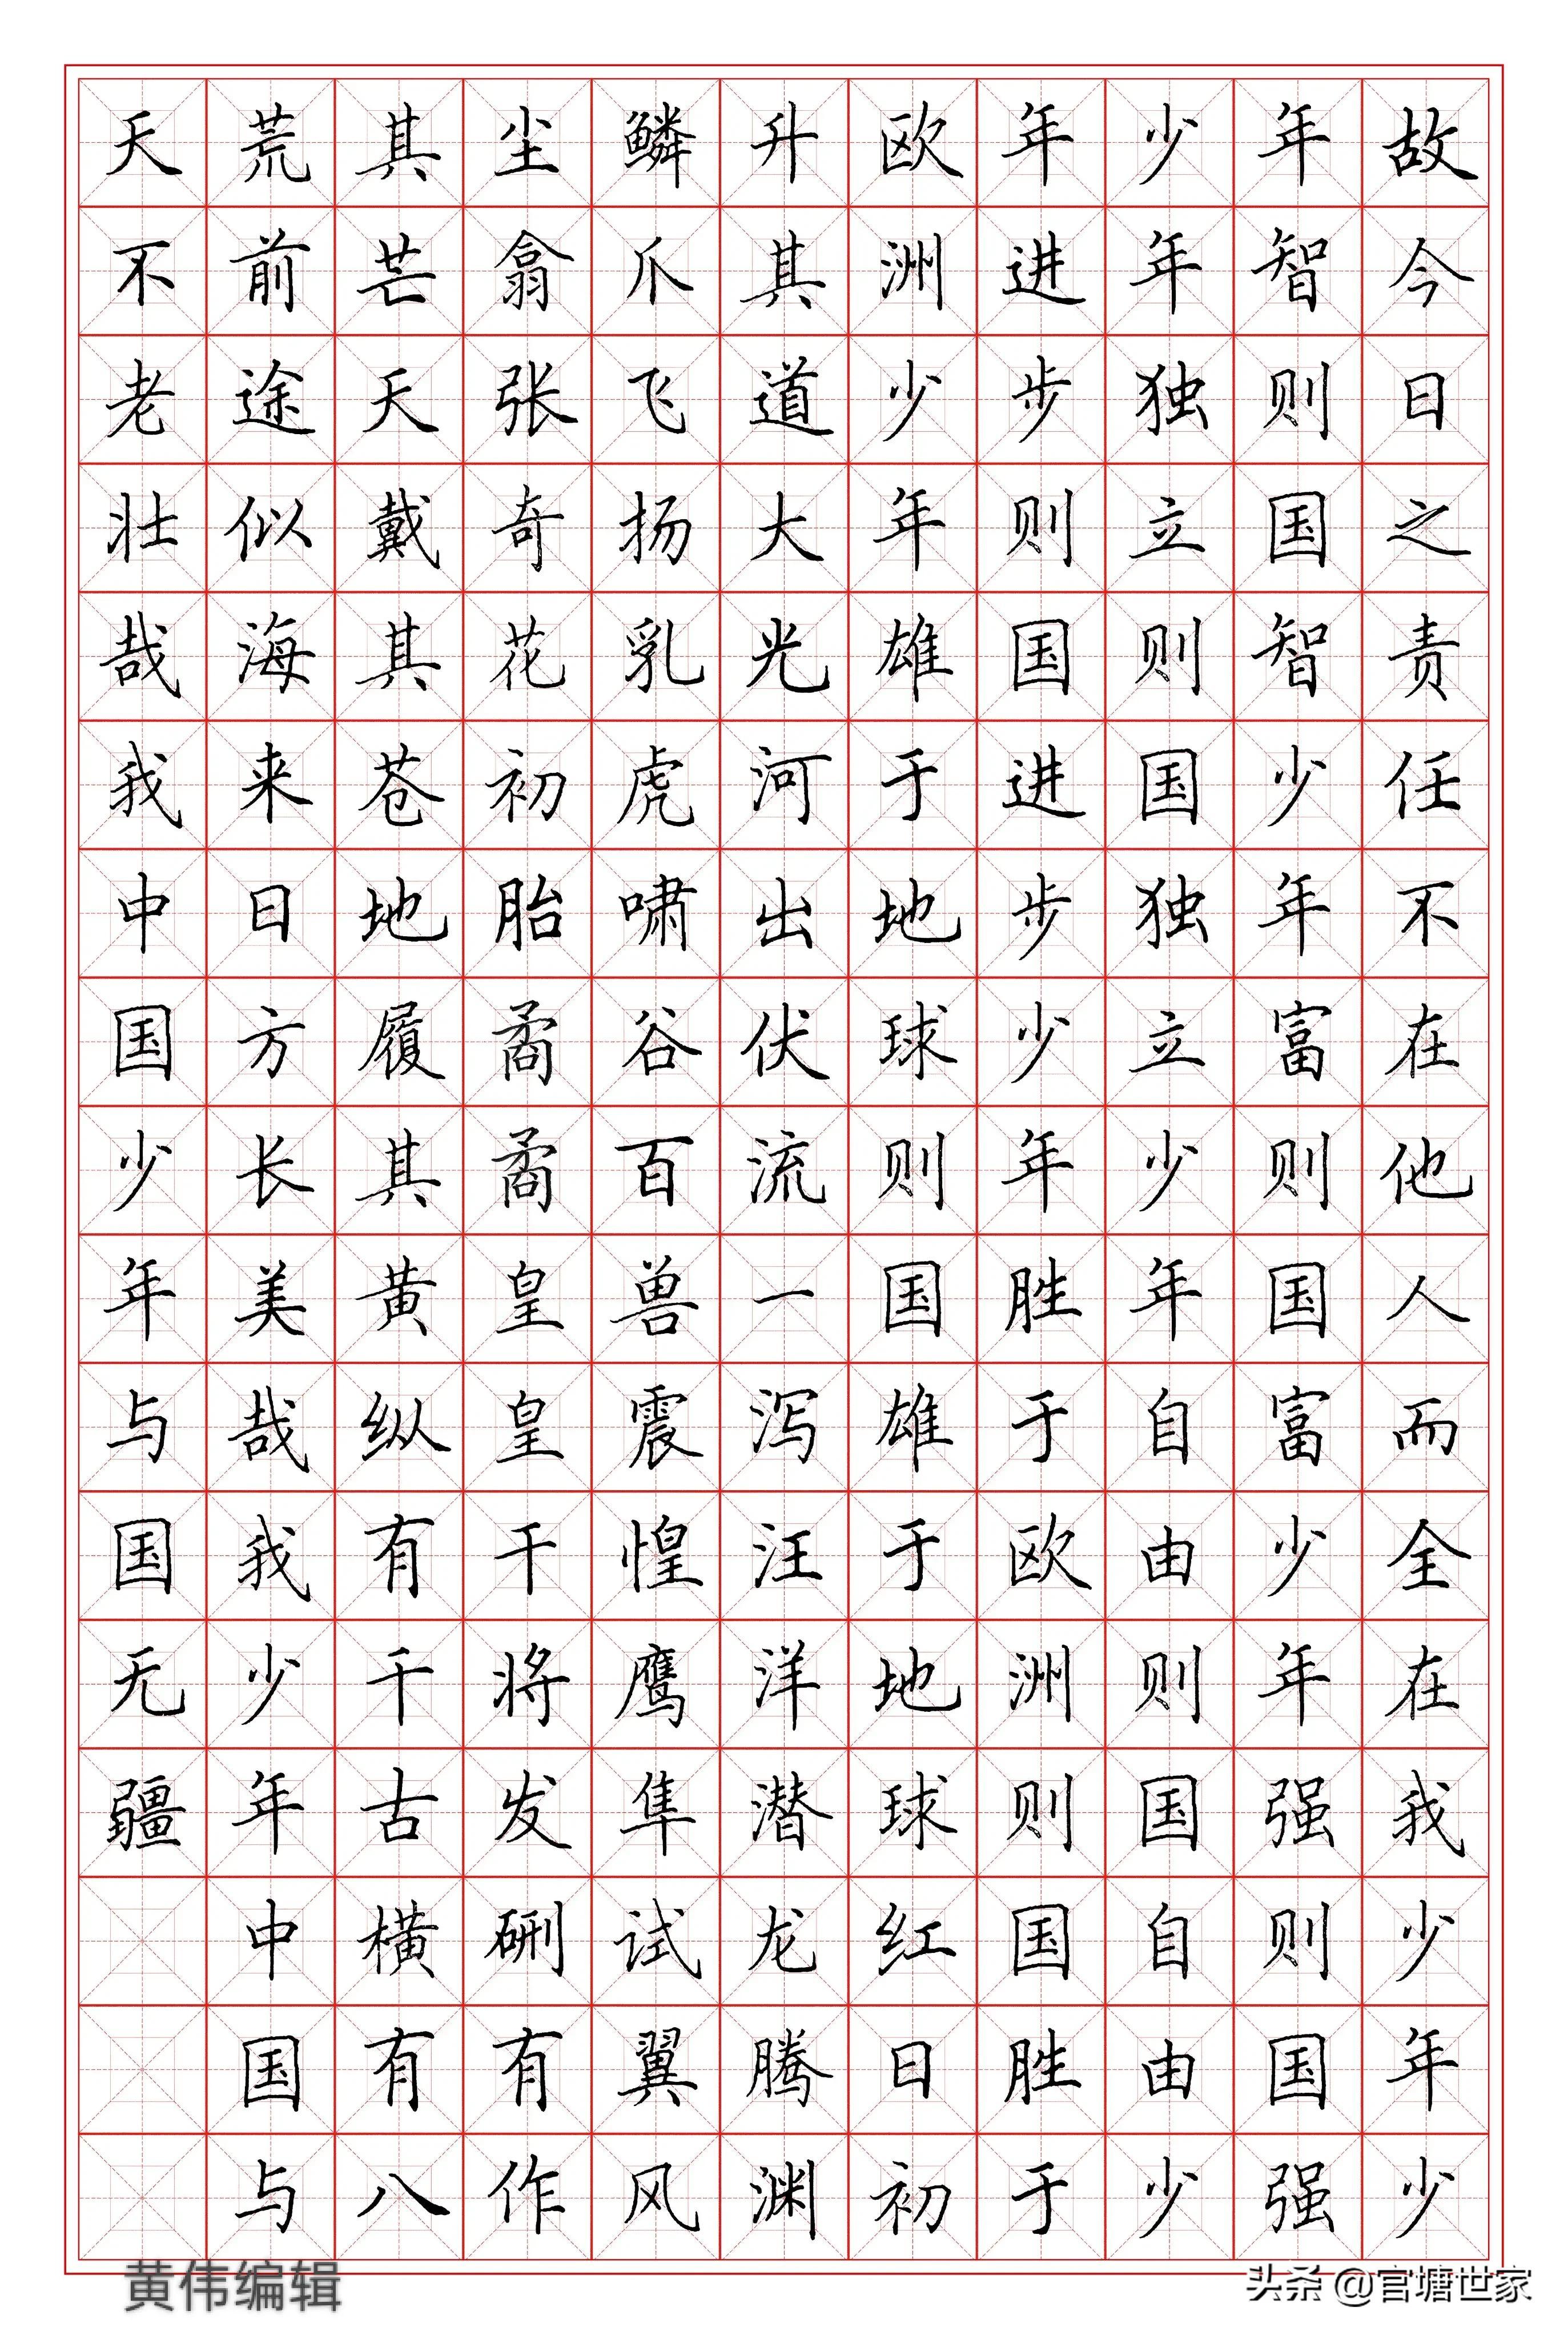 故今日之责任不在他人而全在我少年少
年智则国智少年富则国富少年强则国强
少年独立则国独立少年自由则国自由少
年进步则国进步少年胜于欧洲则国胜于
欧洲少年雄于地球则国雄于地球红日初
升其道大光河出伏流一泻汪洋潜龙腾渊
鳞爪飞扬乳虎啸谷百兽震惶鹰隼试翼风
尘翕张奇花初胎矞矞皇皇干将发硎有作
其芒天戴其苍地履其黄纵有千古横有八
荒前途似海来日方长美哉我少年中国与
天不老壮哉我中国少年与国无疆
黄伟编辑
头条 @官塘世家